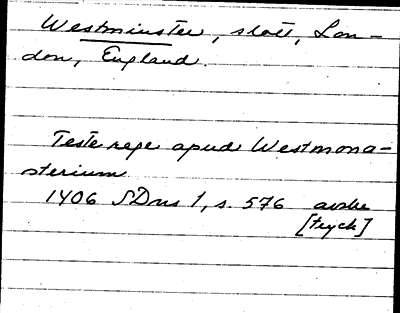 Westminster, slott, Lon-
don, England.
Teste rege apud Westmona-
sterium
1406 SDns 1, s. 576 avskr
[tryck]